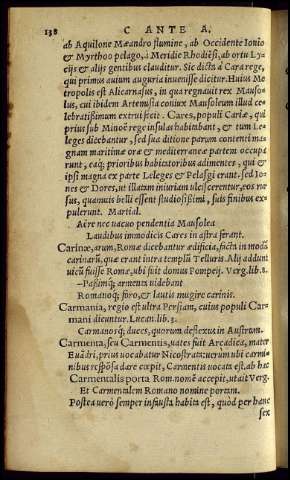 138 C ANTE A.
ab Aquilone Mæandro flumine, ab Occidente Ionio
& Myrthoo pelago, à Meridie Rhodiësi, ab ortu Ly-
cijs & alijs gentibus clauditur. Sic dicta à Cara rege,
qui primus auium auguria inuenisse dicitur. Huius Me
tropolis est Alicarnasus, in qua regnauit rex Mauso-
lus, cui ibidem Artemisia coniux Mausoleum illud ce-
lebratissimum extrui fecit. Cares, populi Cariæ, qui
prius sub Minoë rege insulas habitabant, & tum Le-
leges dicebantur, sed sua ditione parum contenti ma-
gnam maritimæ oræ & mediterraneæ partem occupa
runt, eaq; prioribus habitatoribus adimentes, qui &
ipsi magna ex parte Leleges & Pelasgi erant, sed Io-
nes & Dores, ut illatam iniuriam ulciscerentur, eos rur
sus, quamuis belli essent studiosissimi, suis finibus ex-
pulerunt. Martial.
Aëre nec uacuo pendentia Mausolea
Laudibus immodicis Cares in astra ferant.
Carinæ, arum, Romæ dicebantur ædificia, facta in modũ
carinarũ, quæ erant intra templũ Telluris. Alij addunt
uicũ fuisse Romæ, ubi fuit domus Pompeij. Verg. lib. 8.
—Passimq; armenta uidebant
Romanoq; foro, & lautis mugire carinis.
Carmania, regio est ultra Persiam, cuius populi Car-
mani dicuntur. Lucan. lib. 3.
Carmanosq; duces, quorum deflexus in Austrum.
Carmenta, seu Carmentis, uates fuit Arcadica, mater
Euãdri, prius uocabatur Nicostrata: uerum ubi carmi-
nibus respõsa dare cœpit, Carmentis uocata est. ab hac
Carmentalis porta Rom. nomẽ accepit, ut ait Verg.
Et Carmentalem Romano nomine portam.
Postea uerò semper infausta habita est, quòd per hanc
sex